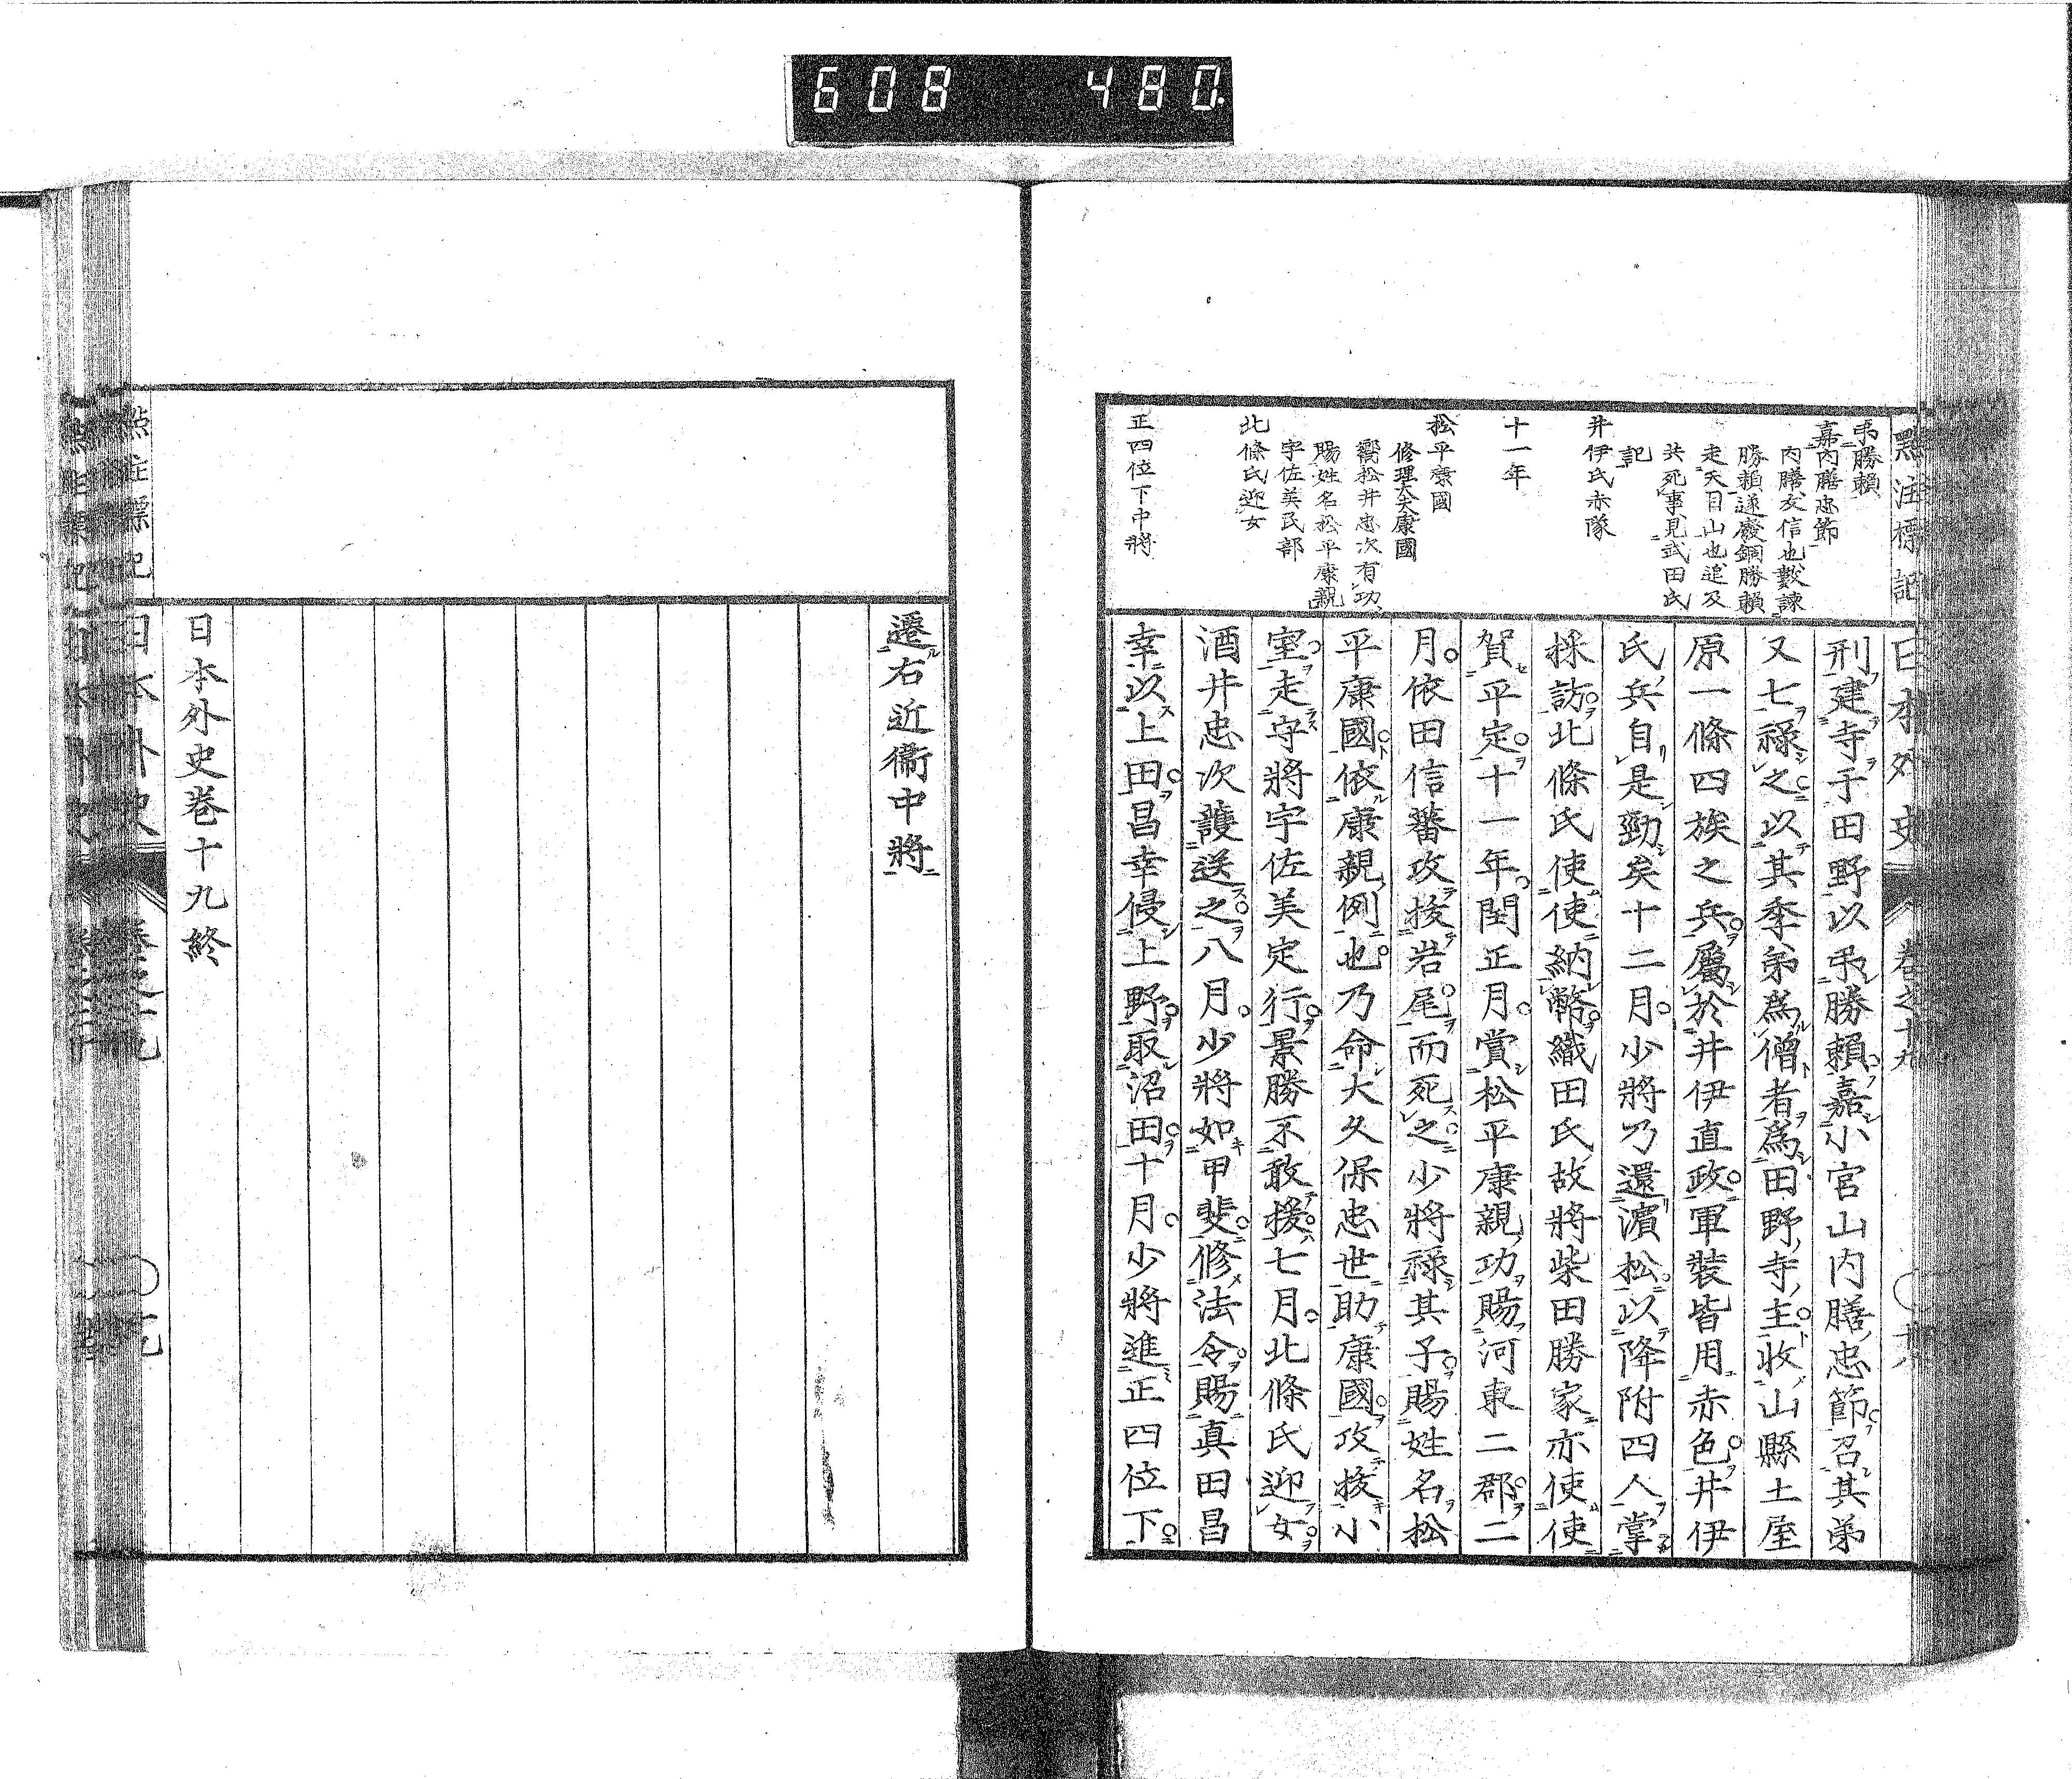 608 480
點注標記
日本外史 卷之十九
弔勝賴
嘉内膳忠節
内膳友信也數諫
勝賴遂廢錮勝賴
走天目山也追及
共死事見武田氏
記
井伊氏赤隊
十一年
松平康國
修理大夫康國
嚮松井忠次有功
賜姓名松平康親
宇佐美民部
北條氏迎女
正四位下中將
刑建寺于田野以弔勝賴嘉小宮山内膳忠節召其弟
又七祿之以其季弟爲僧者爲田野寺主收山縣土屋
原一條四族之兵屬於井伊直政軍裝皆用赤色井伊
氏兵自是勁矣十二月少將乃還濱松以降附四人掌
採訪北條氏使使納幣織田氏故將柴田勝家亦使使
賀平定十一年閏正月賞松平康親功賜河東二郡二
月依田信蕃攻拔岩尾而死之少將祿其子賜姓名松
平康國依康親例也乃命大久保忠世助康國攻拔小
室走守將宇佐美定行景勝不敢援七月北條氏迎女
酒井忠次護送之八月少將如甲斐修法令賜真田昌
幸以上田昌幸侵上野取沼田十月少將進正四位下
遷右近衞中將
日本外史卷十九終